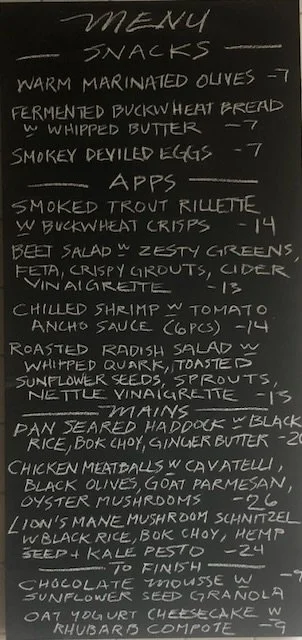 MENU
SNACKS
WARM MARINATED OLIVES -7
FERMENTED BUCKWHEAT BREAD
W WHIPPED BUTTER -7
SMOKEY DEVILED EGGS -7
APPS
SMOKED TROUT RILLETTE
W BUCKWHEAT CRISPS -14
BEET SALAD W ZESTY GREENS,
FETA, CRISPY GROUTS, CIDER
VINAIGRETTE -13
CHILLED SHRIMP W TOMATO
ANCHO SAUCE (6PCS) -14
ROASTED RADISH SALAD W
WHIPPED QUARK, TOASTED
SUNFLOWER SEEDS, SPROUTS,
NETTLE VINAIGRETTE -13
MAINS
PAN SEARED HADDOCK W BLACK
RICE, BOK CHOY, GINGER BUTTER
CHICKEN MEATBALLS W CAVATELLI,
BLACK OLIVES, GOAT PARMESAN,
OYSTER MUSHROOMS -26
LION'S MANE MUSHROOM SCHNITZEL
W BLACK RICE, BOK CHOY, HEMP
+ KALE PESTO -24
TO FINISH
CHOCOLATE MOUSSE W -9
SUNFLOWER SEED GRANOLA
OAT YOGURT CHEESECAKE W
RHUBARB COMPOTE -9